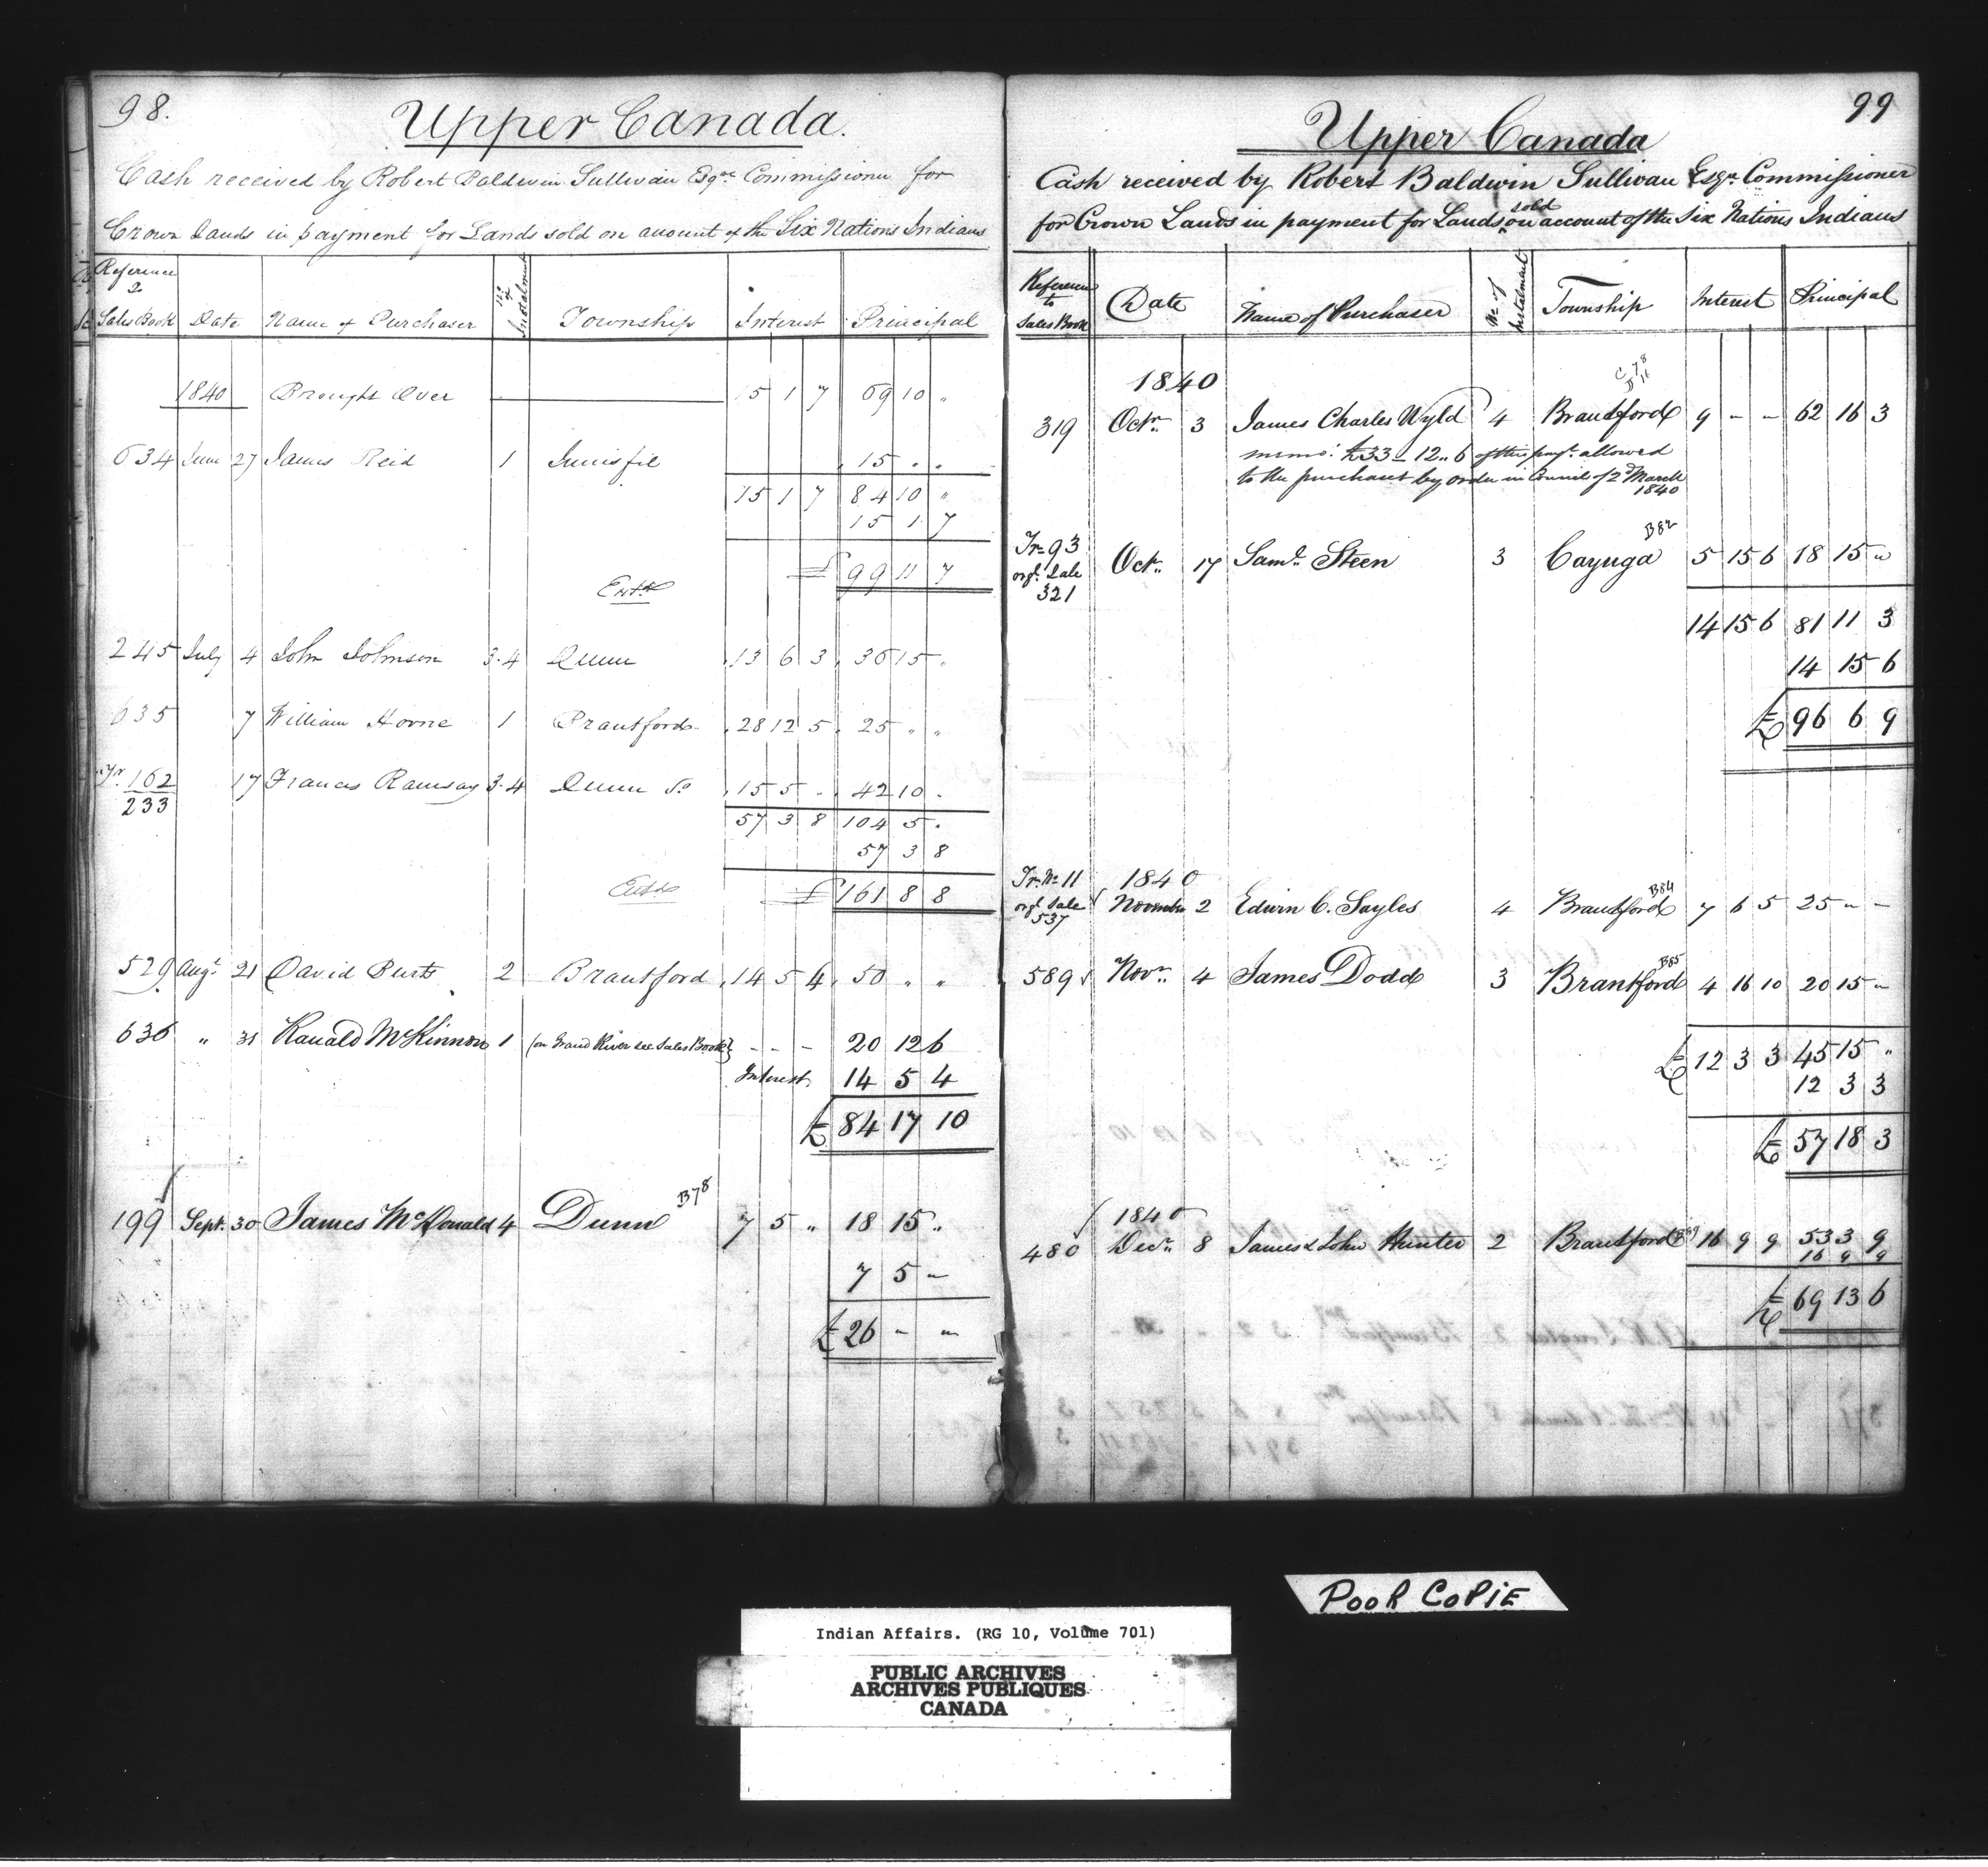 98.
Upper Canada.
Cash received by Robert Baldwin Sullivan Esqre Commissioner for
Crown Lands in payment for Lands sold on account of the Six Nations Indians
Reference to Sales Book | Date | Name of Purchaser | No of Instalment | Township | Interest | Principal
1840 Brought Over 15 1 7 69 10 "
634 June 27 James Reid 1 Innisfil 15 " "
15 1 7 84 10 "
15 1 7
£ 99 11 7
Entd
245 July 4 John Johnson 3.4 Dunn 13 6 3 36 15 "
635 7 William Horne 1 Brantford 28 12 5 25 " "
Tr. 162
233 17 Francis Ramsay 3.4 Dunn So 15 5 " 42 10 "
57 3 8 104 5 "
57 3 8
Entd £ 161 8 8
529 Augt 21 David Burts 2 Brantford 14 5 4 50 " "
636 " 31 Ranald McKinnon 1 (on Grand River see Sales Book) - - - 20 12 6
Interest 14 5 4
£ 84 17 10
199 Sept. 30 James McDonald 4 Dunn B78 7 5 " 18 15 "
7 5 "
£ 26 - -
99
Upper Canada
Cash received by Robert Baldwin Sullivan Esqr. Commissioner
for Crown Lands in payment for Lands sold on account of the Six Nations Indians
Reference to Sales Book | Date | Name of Purchaser | No of Instalment | Township | Interest | Principal
1840 C 78
319 Octr. 3 James Charles Wyld 4 Brantford 9 - - 62 16 3
memo: £33 - 12 .. 6 of this payt. allowed
to the purchaser by order in Council of 2d March
1840
Tr 93
orgl. Sale
321 Octr. 17 Saml. Steen 3 Cayuga B82 5 15 6 18 15 "
14 15 6 81 11 3
14 15 6
£ 96 6 9
Tr. No 11 1840
orgl. Sale
537 November 2 Edwin C. Sayles 4 Brantford B84 7 6 5 25 " -
589 Novr. 4 James Dodd 3 Brantford B85 4 16 10 20 15 "
£ 12 3 3 45 15 "
12 3 3
£ 57 18 3
1840
480 Decr. 8 James & John Hunter 2 Brantford 16 9 9 53 3 9
16 9 9
£ 69 13 6
POOR COPIE
Indian Affairs. (RG 10, Volume 701)
PUBLIC ARCHIVES
ARCHIVES PUBLIQUES
CANADA